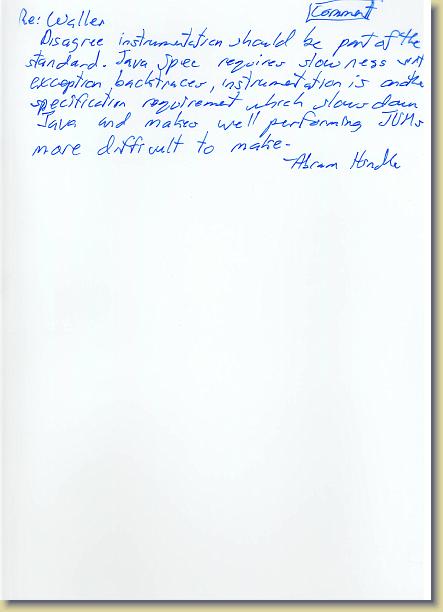 Re: Waller
Comment
Disagree instrumentation should be part of the
standard. Java spec requires slowness
exception backtraces, instrumentation is another
specification requirement which slows down
Java and makes well performing JVMs
more difficult to make.
-Abram Hindle